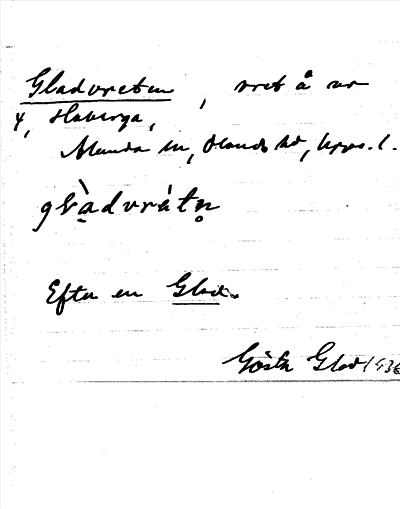 Gladvreten, vret å nr
4, Haberga,
Almunda sn, Olands hd, Upps. l.
glàdvrétn̥
Efter en Glad.
Gösta Glad 1936